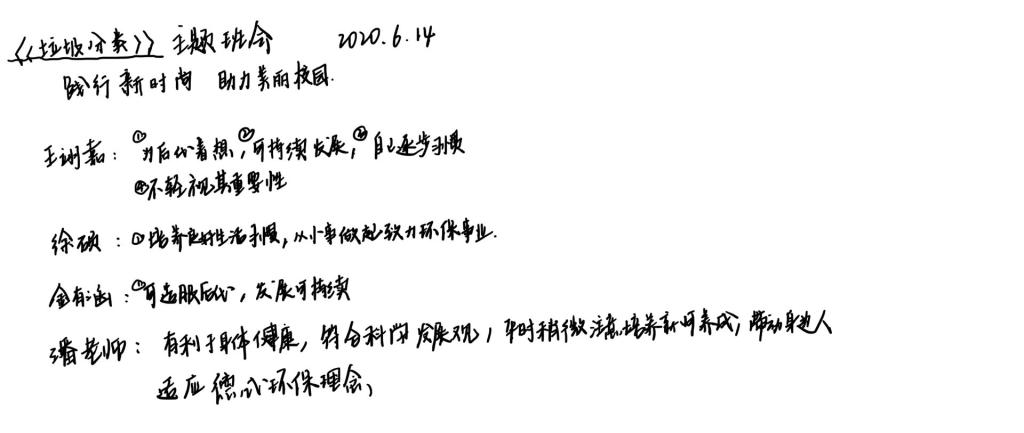 《垃圾分类》主题班会 2020.6.14
践行新时尚 助力美丽校园.
王诩嘉：①为后代着想，②可持续发展，③自己逐步习惯
④不轻视其重要性
徐硕：①培养良好生活习惯，从小事做起致力环保事业.
金有涵：①可造服后代，发展可持续
潘老师：有利于身体健康，符合科学发展观，平时稍微注意培养新可养成，带动身边人
适应德式环保理念，